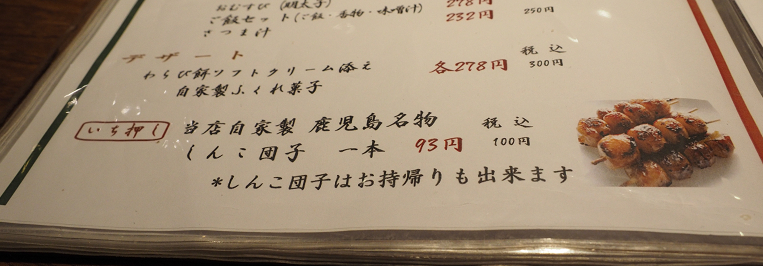 おむすび(明太子) 278円
ご飯セット(ご飯・香物・味噌汁) 232円 250円
さつま汁
デザート 税込
わらび餅ソフトクリーム添え 各278円 300円
自家製ふくれ菓子
いち押し 当店自家製 鹿児島名物 税込
しんこ団子 一本 93円 100円
*しんこ団子はお持帰りも出来ます